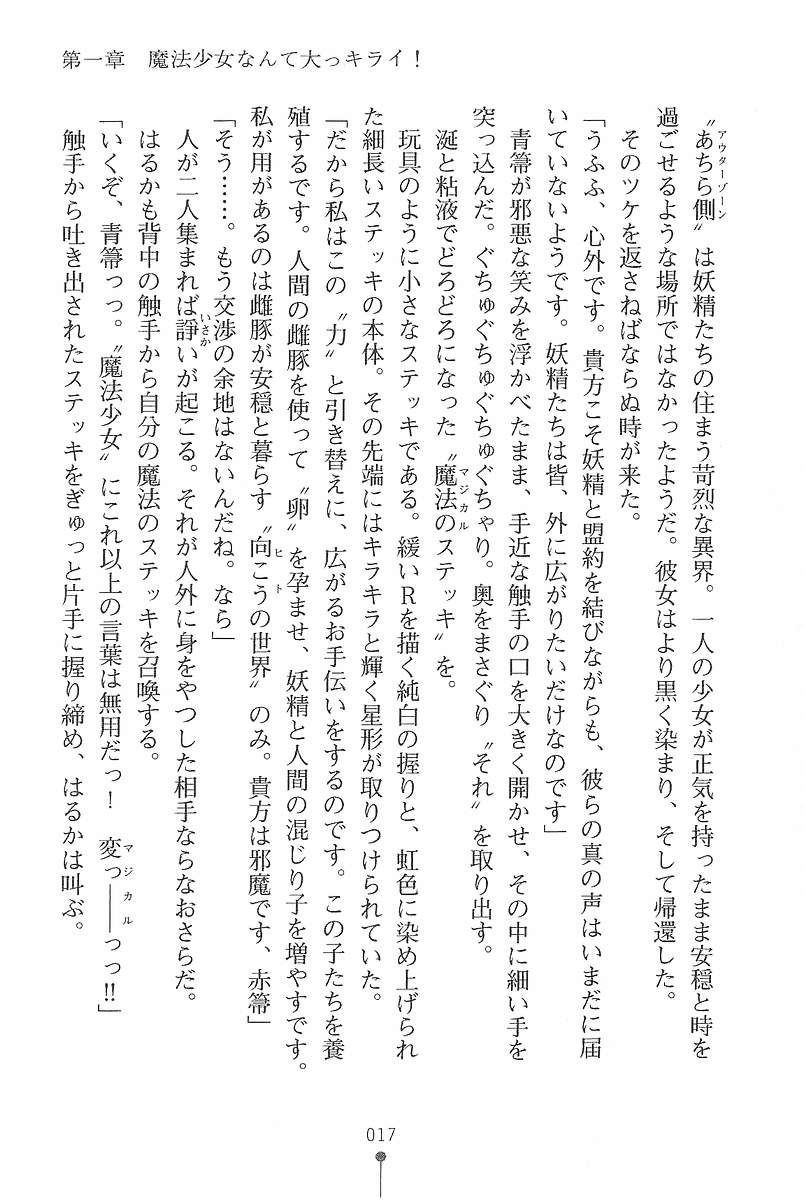 第一章　魔法少女なんて大っキライ！
〝あちら側〟は妖精たちの住まう苛烈な異界。一人の少女が正気を持ったまま安穏と時を
アウターゾーン
過ごせるような場所ではなかったようだ。彼女はより黒く染まり、そして帰還した。
そのツケを返さねばならぬ時が来た。
「うふふ、心外です。貴方こそ妖精と盟約を結びながらも、彼らの真の声はいまだに届
いていないようです。妖精たちは皆、外に広がりたいだけなのです」
青箒が邪悪な笑みを浮かべたまま、手近な触手の口を大きく開かせ、その中に細い手を
突っ込んだ。ぐちゅぐちゅぐちゃり。奥をまさぐり〝それ〟を取り出す。
涎と粘液でどろどろになった〝魔法のステッキ〟を。
マジカル
玩具のように小さなステッキである。緩いＲを描く純白の握りと、虹色に染め上げられ
た細長いステッキの本体。その先端にはキラキラと輝く星形が取りつけられていた。
「だから私はこの〝力〟と引き替えに、広がるお手伝いをするのです。この子たちを養
殖するです。人間の雌豚を使って〝卵〟を孕ませ、妖精と人間の混じり子を増やすです。
私が用があるのは雌豚が安穏と暮らす〝向こうの世界〟のみ。貴方は邪魔です、赤箒」
ヒト
「そう……。もう交渉の余地はないんだね。なら」
人が二人集まれば諍いが起こる。それが人外に身をやつした相手ならなおさらだ。
いさか
はるかも背中の触手から自分の魔法のステッキを召喚する。
「いくぞ、青箒っっ。〝魔法少女〟にこれ以上の言葉は無用だっ！　変っ――っっ!!」
マジカル
触手から吐き出されたステッキをぎゅっと片手に握り締め、はるかは叫ぶ。
017